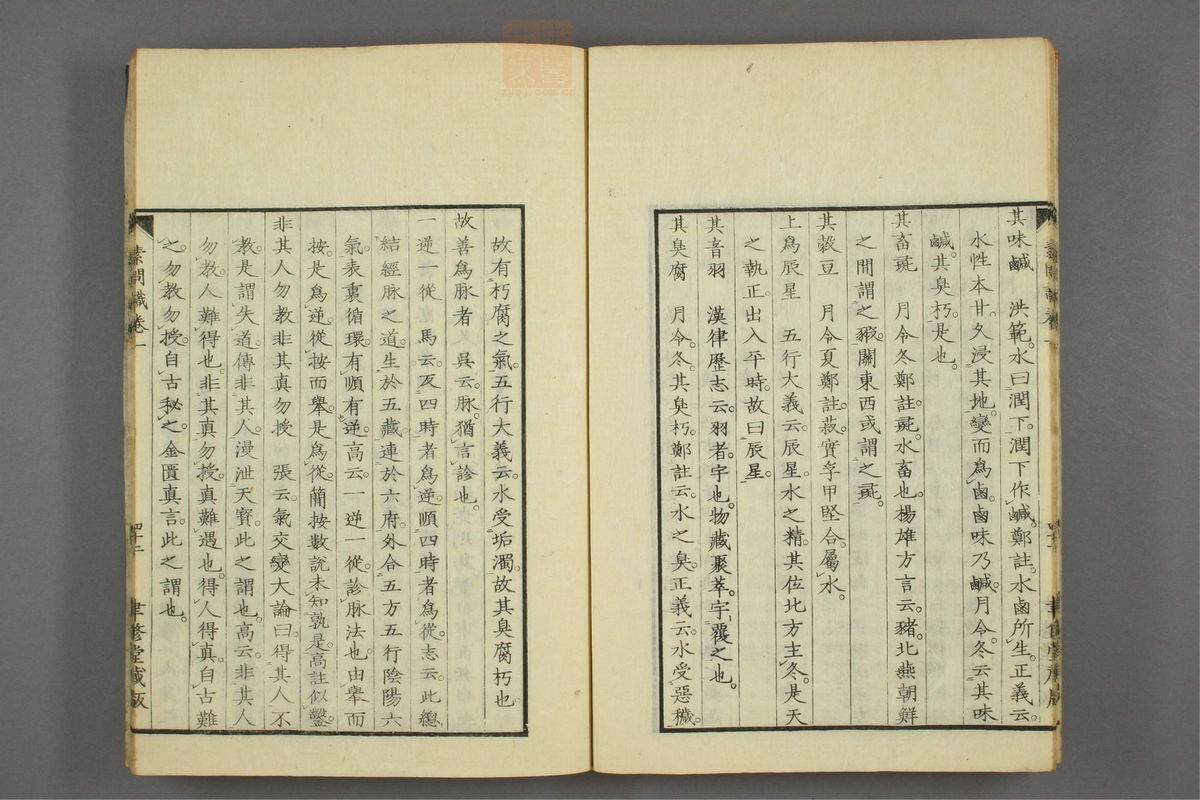 其味鹹　洪範。水曰潤下。潤下作鹹。鄭註。水鹵所生。正義云。
水性本甘。久浸其地。變而爲鹵。鹵味乃鹹。月令。冬云其味
鹹。其臭朽。是也。
其畜彘　月令冬。鄭註。彘。水畜也。楊雄方言云。豬。北燕朝鮮
之間謂之豭。關東西或謂之彘。
其穀豆　月令夏。鄭註。菽。實孚甲堅合。屬水。
上爲辰星　五行大義云。辰星。水之精。其位北方。主冬。是天
之執正。出入平時。故曰辰星。
其音羽　漢律歷志云。羽者。宇也。物藏聚萃。宇覆之也。
其臭腐　月令。冬。其臭朽。鄭註云。水之臭。正義云。水受惡穢。
故有朽腐之氣。五行大義云。水受垢濁。故其臭腐朽也。
故善爲脉者　吳云。脉。猶言診也。
一逆一從　馬云。反四時者爲逆。順四時者爲從。志云。此總
結經脉之道。生於五藏。連於六府。外合五方五行陰陽六
氣。表裏循環。有順有逆。高云。一逆一從。診脉法也。由舉而
按。是爲逆從。按而舉。是爲從。簡按。數說未知孰是。高註似鑿。
非其人勿教非其真勿授　張云。氣交變大論曰。得其人不
教。是謂失道。傳非其人。漫泄天寶。此之謂也。高云。非其人
勿教。人難得也。非其真勿授。真難遇也。得人得真。自古難
之。勿教勿授。自古秘之。金匱真言。此之謂也。
素問識卷一
四十二
聿修堂藏版